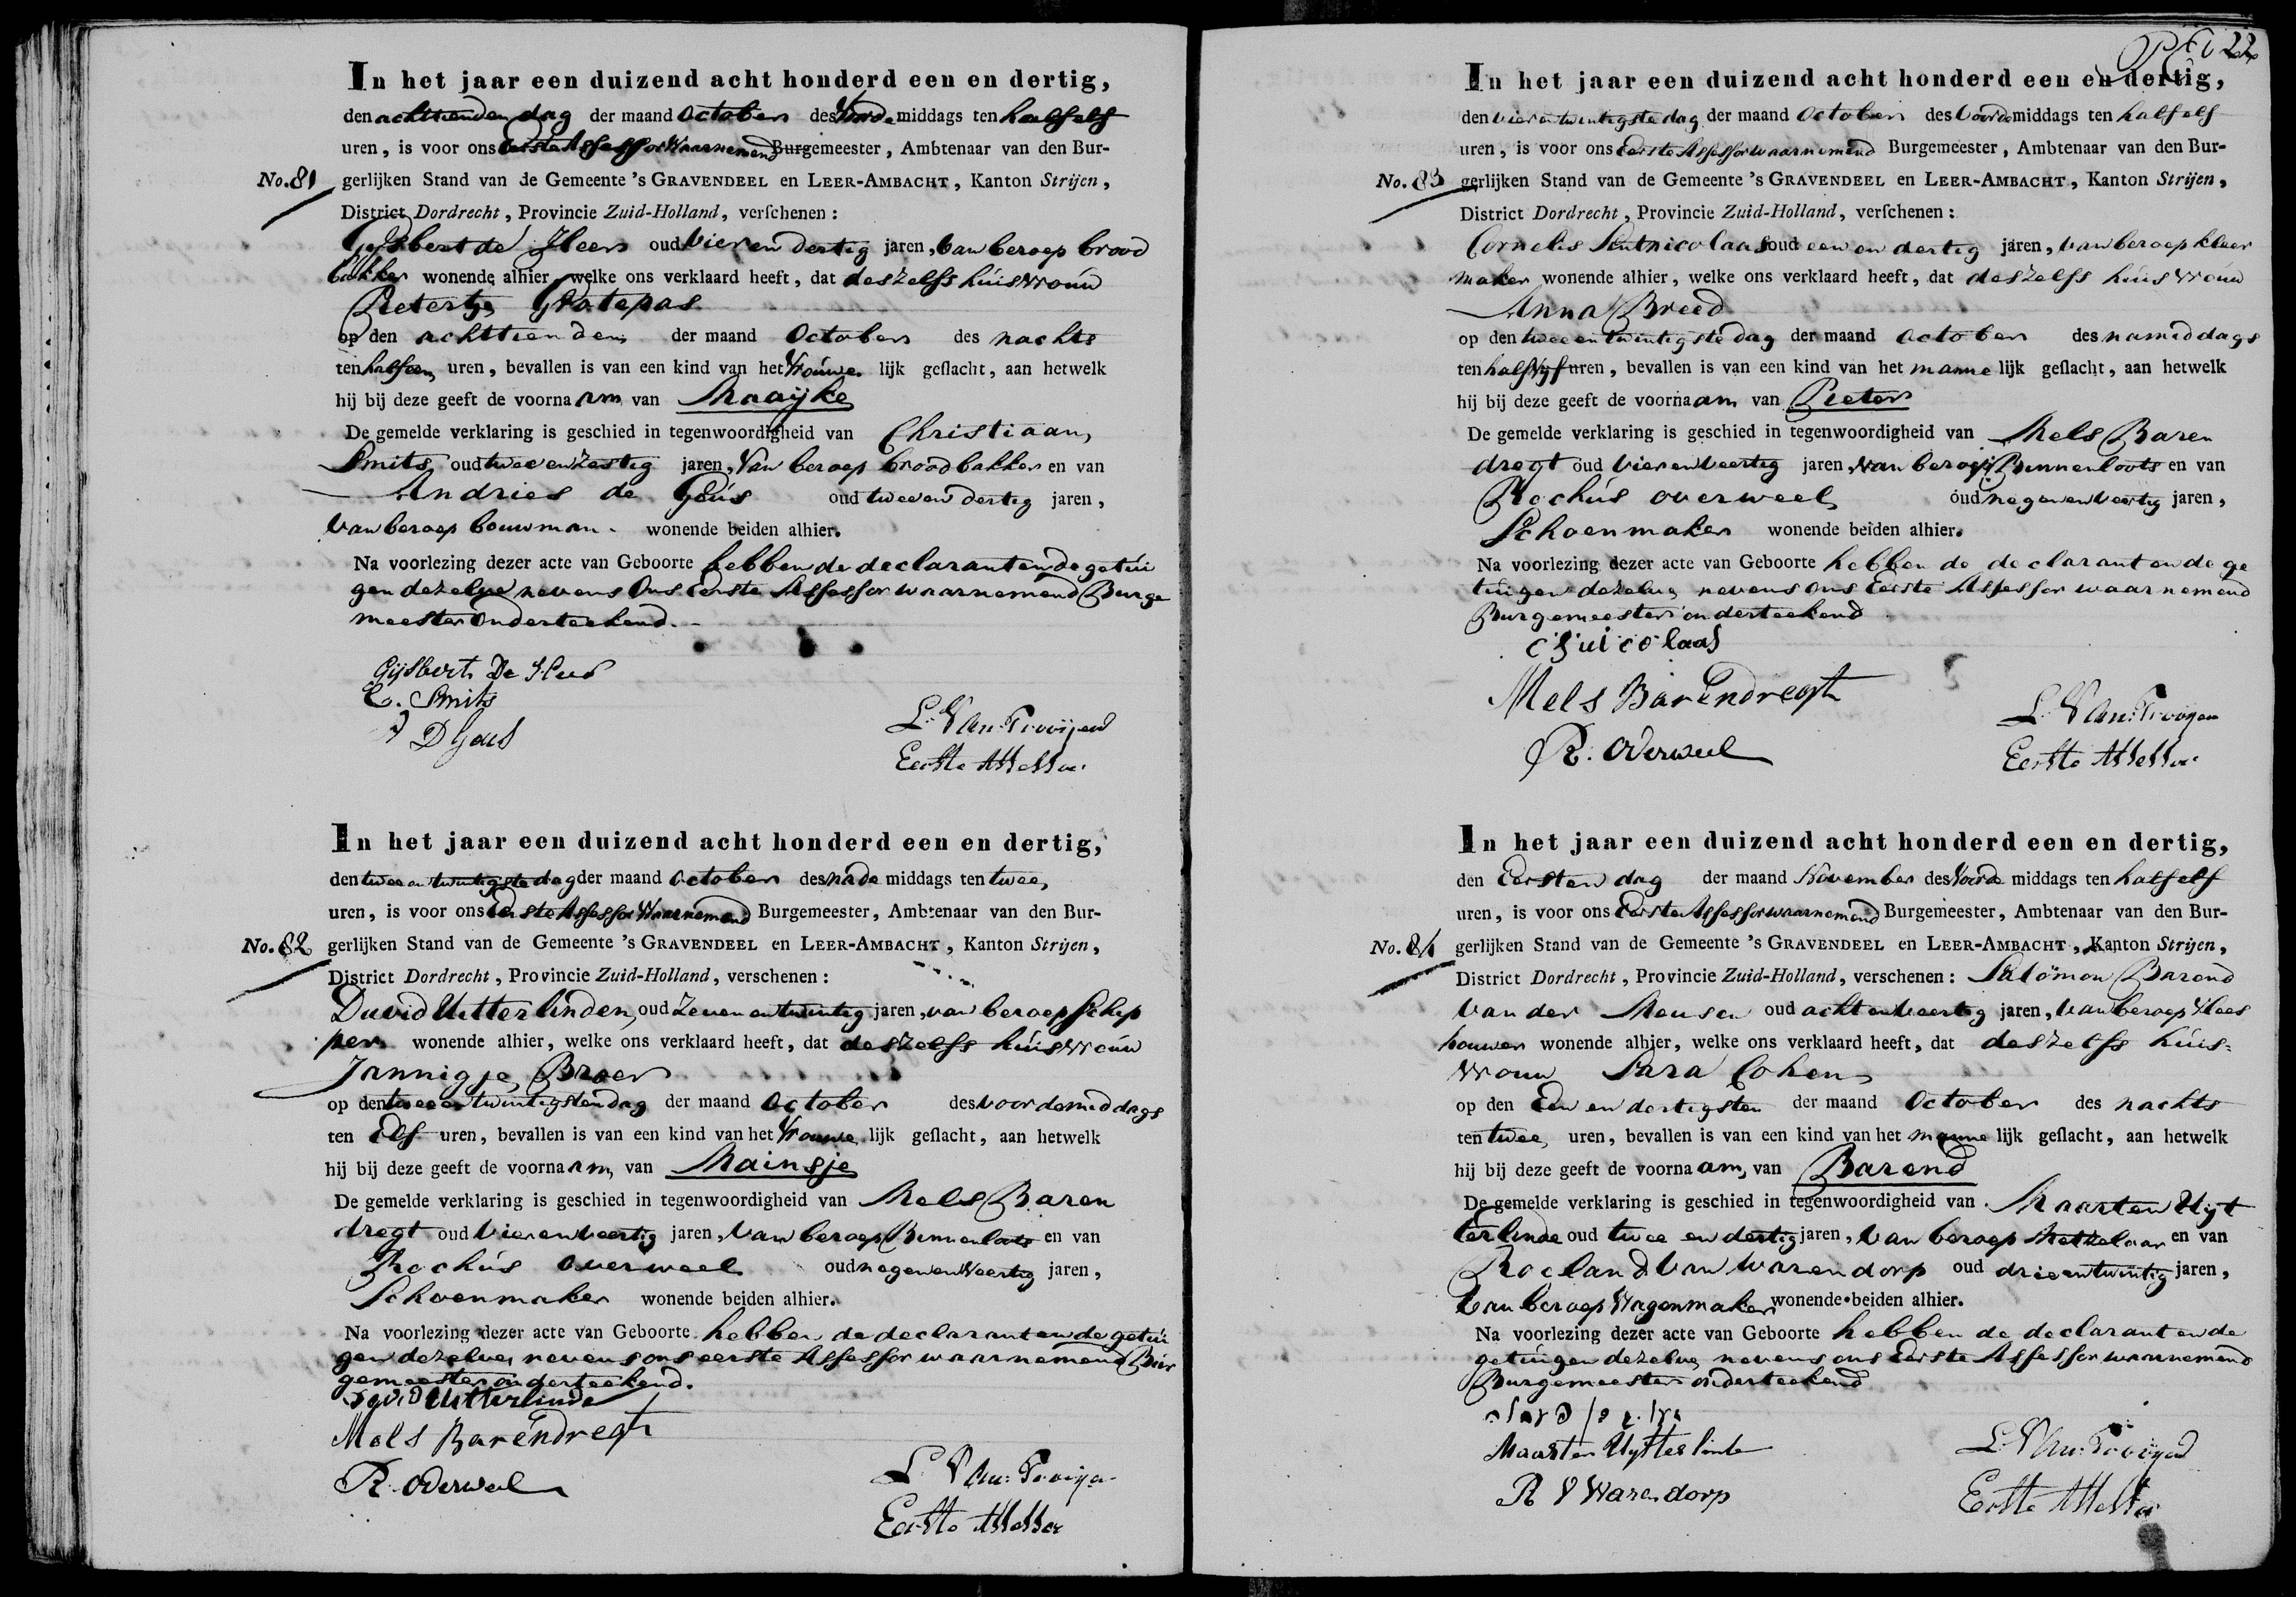 In het jaar een duizend acht honderd een en dertig,
den achttienden dag der maand October des Voorde middags ten half elf
uren, is voor ons Eerste Assessor Waarnemend Burgemeester, Ambtenaar van den Bur-
No. 81 gerlijken Stand van de Gemeente 's GRAVENDEEL en LEER-AMBACHT, Kanton Strijen,
District Dordrecht, Provincie Zuid-Holland, verschenen:
Gijsbert de Heer oud Vier en dertig jaren, van beroep brood
bakker wonende alhier, welke ons verklaard heeft, dat deszelfs huisvrouw
Pietertje Gratepas
op den achttienden der maand October des nachts
ten half een uren, bevallen is van een kind van het Vrouwe lijk geslacht, aan hetwelk
hij bij deze geeft de voorna am van Maaijke
De gemelde verklaring is geschied in tegenwoordigheid van Christiaan
Smits oud twee en zestig jaren, van beroep broodbakker en van
Andries de Geus oud twee en dertig jaren,
van beroep bouwman wonende beiden alhier.
Na voorlezing dezer acte van Geboorte hebben de declarant en de getui
gen dezelve nevens Ons Eerste Assessor waarnemend Burge
meester onderteekend.
Gijsbert De Heer
C. Smits
D Geus
L. Van Trooijen
Eerste Assessor
In het jaar een duizend acht honderd een en dertig,
den twee en twintigste dag der maand October des nade middags ten twee
uren, is voor ons Eerste Assessor Waarnemend Burgemeester, Ambtenaar van den Bur-
No. 82 gerlijken Stand van de Gemeente 's GRAVENDEEL en LEER-AMBACHT, Kanton Strijen,
District Dordrecht, Provincie Zuid-Holland, verschenen:
David Uitterlinden, oud zeven en twintig jaren, van beroep Schip
per wonende alhier, welke ons verklaard heeft, dat deszelfs huisvrouw
Jannigje Broer
op den twee en twintigsten dag der maand October des voordemiddags
ten Elf uren, bevallen is van een kind van het Vrouwe lijk geslacht, aan hetwelk
hij bij deze geeft de voorna am van Mainsje
De gemelde verklaring is geschied in tegenwoordigheid van Mels Baren
dregt oud vier en veertig jaren, van beroep Binnenloots en van
Rochus Overweel oud negen en veertig jaren,
Schoenmaker wonende beiden alhier.
Na voorlezing dezer acte van Geboorte hebben de declarant en de getui
gen dezelve nevens ons eerste Assessor waarnemend Bur
gemeester onderteekend.
David Uitterlinde
Mels Barendregt
R. Overweel
L. Van Trooijen
Eerste Assessor
22
In het jaar een duizend acht honderd een en dertig,
den vier en twintigste dag der maand October des Voorde middags ten half elf
uren, is voor ons Eerste Assessor waarnemend Burgemeester, Ambtenaar van den Bur-
No. 83 gerlijken Stand van de Gemeente 's GRAVENDEEL en LEER-AMBACHT, Kanton Strijen,
District Dordrecht, Provincie Zuid-Holland, verschenen:
Cornelis Sintnicolaas oud een en dertig jaren, van beroep kleer
maker wonende alhier, welke ons verklaard heeft, dat deszelfs huisvrouw
Anna Breed
op den twee en twintigste dag der maand October des namiddags
ten half vijf uren, bevallen is van een kind van het manne lijk geslacht, aan hetwelk
hij bij deze geeft de voorna am van Pieter
De gemelde verklaring is geschied in tegenwoordigheid van Mels Baren
dregt oud vier en veertig jaren, van beroep Binnenloots en van
Rochus overweel oud negen en veertig jaren,
Schoenmaker wonende beiden alhier.
Na voorlezing dezer acte van Geboorte hebben de declarant en de ge
tuigen dezelve nevens ons Eerste Assessor waarnemend
Burgemeester onderteekend
Mels Barendregt
R. Overweel
L. Van Trooijen
Eerste Assessor
In het jaar een duizend acht honderd een en dertig,
den Eersten dag der maand November des Voorde middags ten half elf
uren, is voor ons Eerste Assessor waarnemend Burgemeester, Ambtenaar van den Bur-
No. 84 gerlijken Stand van de Gemeente 's GRAVENDEEL en LEER-AMBACHT, Kanton Strijen,
District Dordrecht, Provincie Zuid-Holland, verschenen: Salomon Barend
van der oud acht en veertig jaren, van beroep Vlees
houwer wonende alhier, welke ons verklaard heeft, dat deszelfs huis-
vrouw Sara Cohen
op den Een en dertigsten der maand October des nachts
ten twee uren, bevallen is van een kind van het manne lijk geslacht, aan hetwelk
hij bij deze geeft de voorna am, van Barend
De gemelde verklaring is geschied in tegenwoordigheid van Maarten Uyt
terlinde oud twee en dertig jaren, van beroep Metzelaar en van
Roeland van Warendorp oud drie en twintig jaren,
van beroep Wagenmaker wonende beiden alhier.
Na voorlezing dezer acte van Geboorte hebben de declarant en de
getuigen dezelve nevens ons Eerste Assessor waarnemend
Burgemeester onderteekend
Maarten Uytterlinde
R V Warendorp
L. Van Trooijen
Eerste Assessor